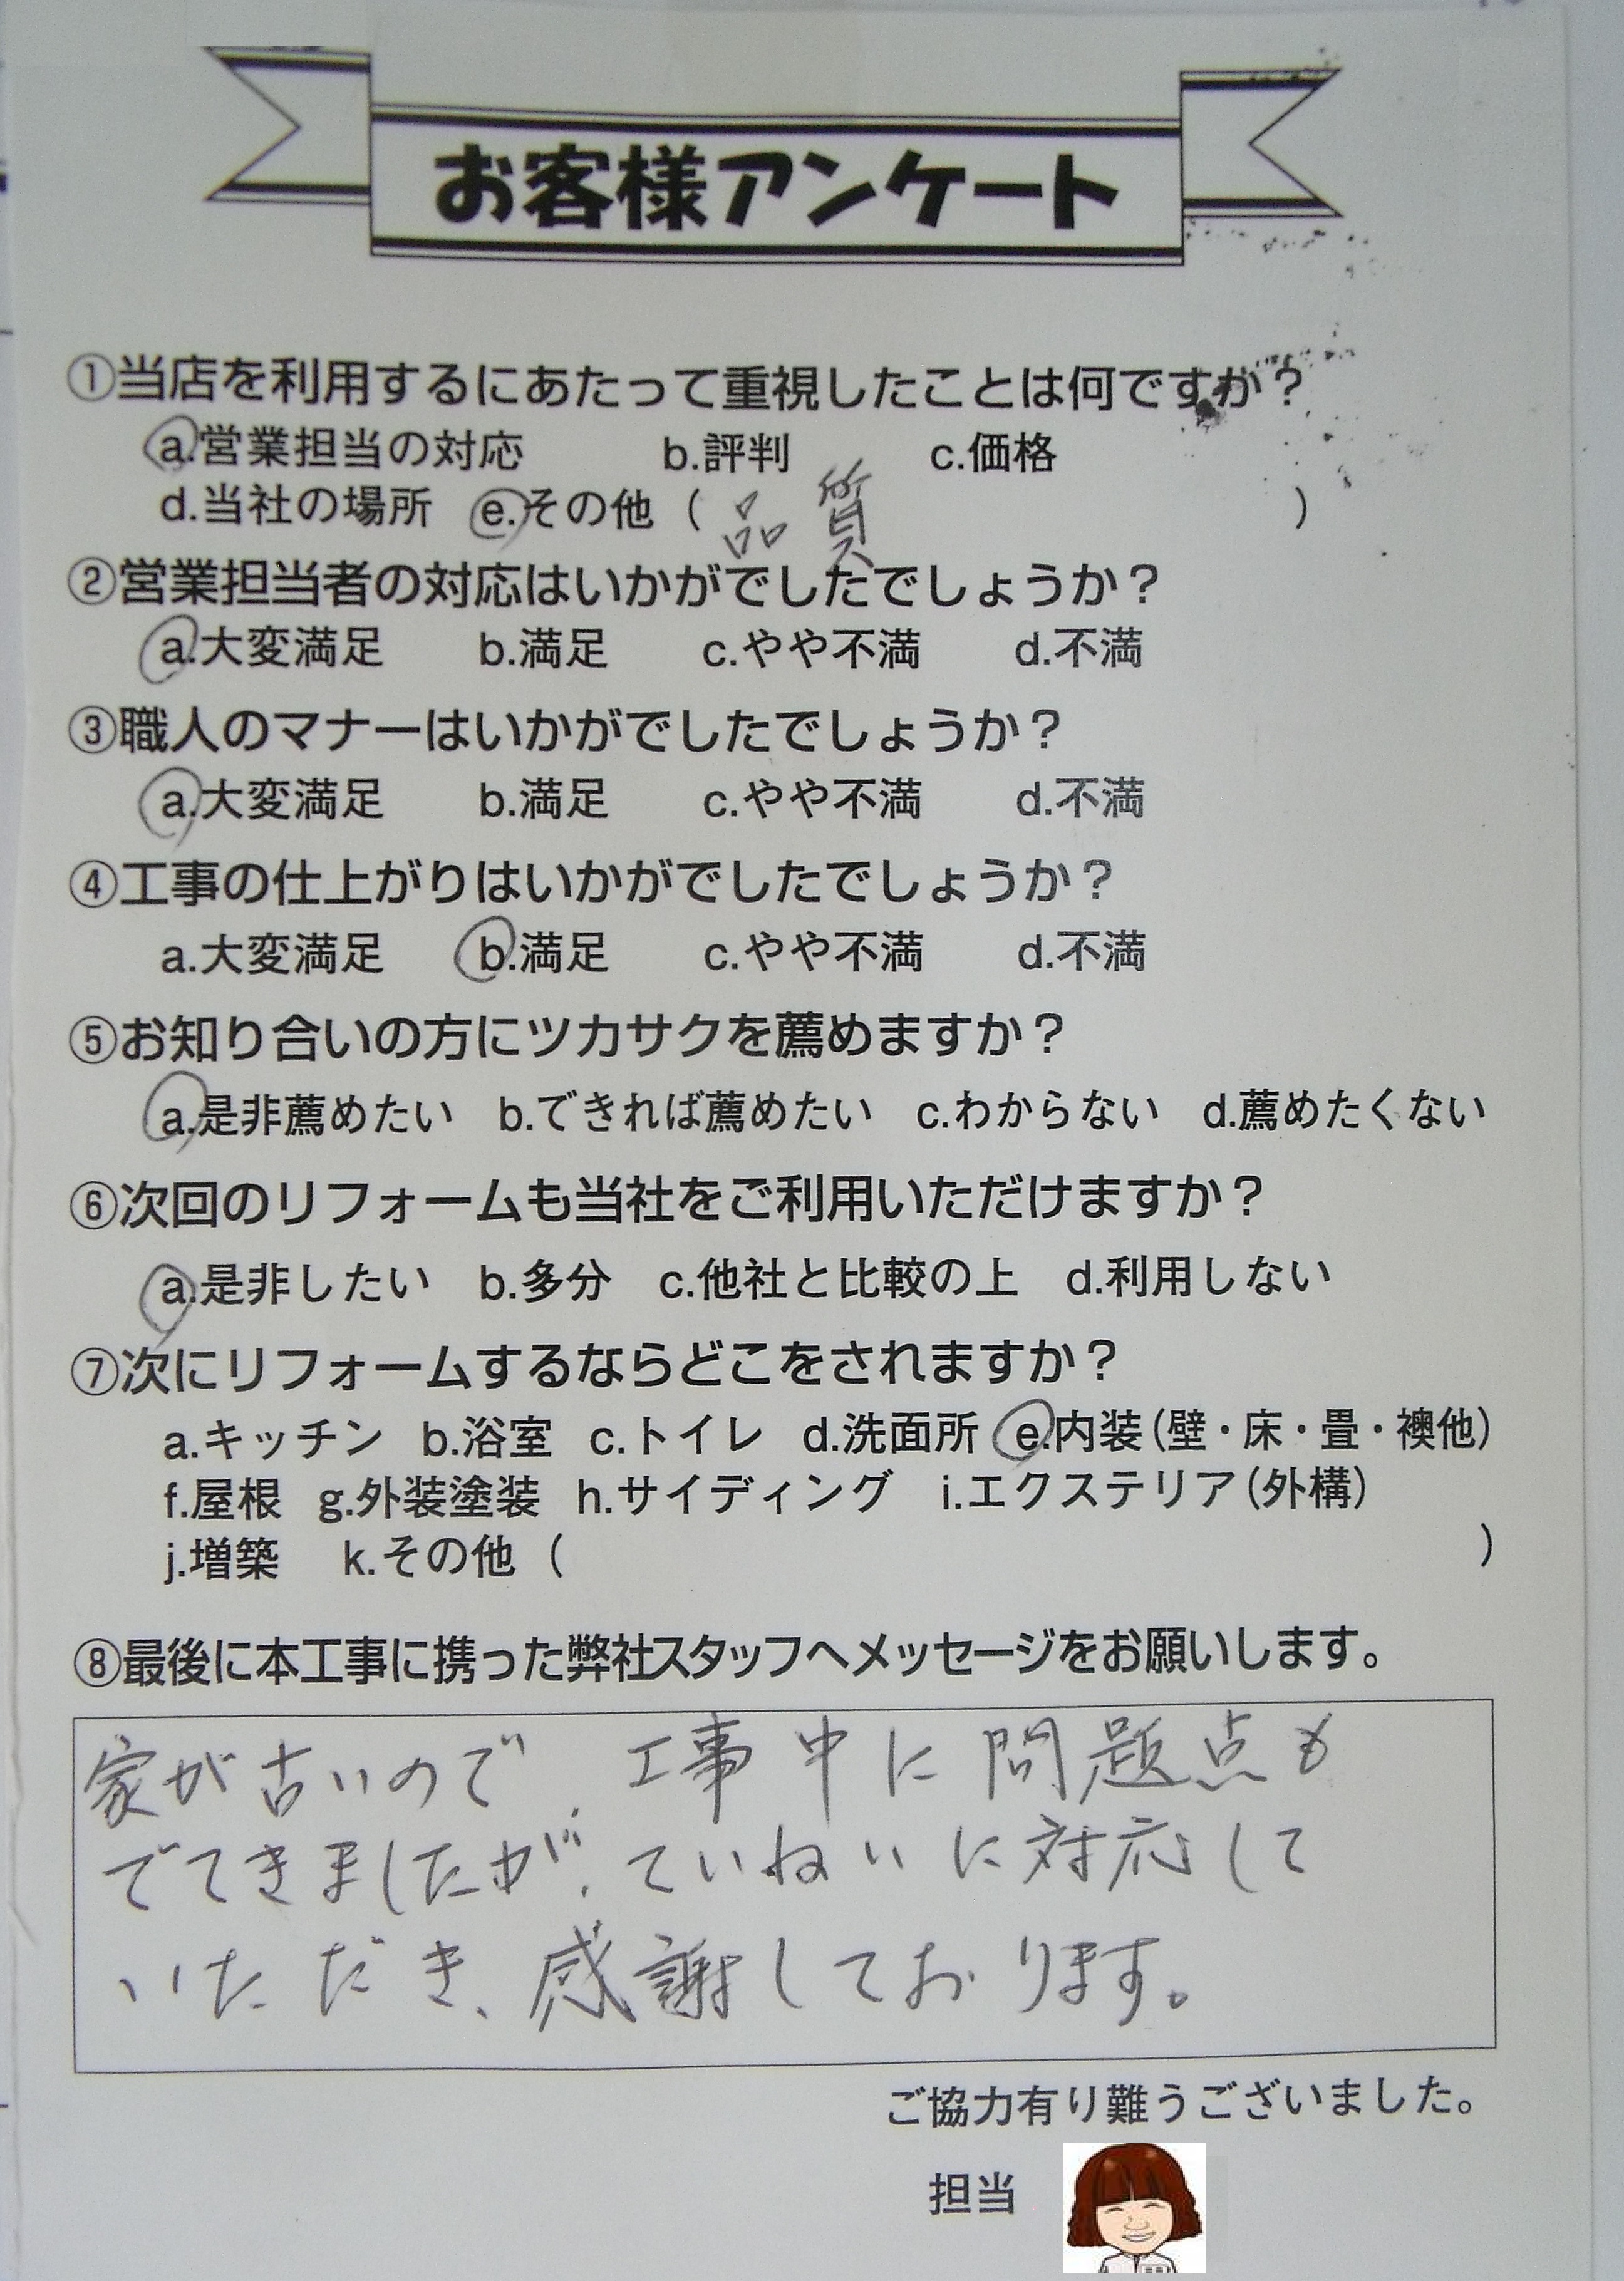 お客様アンケート
①当店を利用するにあたって重視したことは何ですか？
a.営業担当の対応 b.評判 c.価格
d.当社の場所 e.その他（品質）
②営業担当者の対応はいかがでしたでしょうか？
a.大変満足 b.満足 c.やや不満 d.不満
③職人のマナーはいかがでしたでしょうか？
a.大変満足 b.満足 c.やや不満 d.不満
④工事の仕上がりはいかがでしたでしょうか？
a.大変満足 b.満足 c.やや不満 d.不満
⑤お知り合いの方にツカサクを薦めますか？
a.是非薦めたい b.できれば薦めたい c.わからない d.薦めたくない
⑥次回のリフォームも当社をご利用いただけますか？
a.是非したい b.多分 c.他社と比較の上 d.利用しない
⑦次にリフォームするならどこをされますか？
a.キッチン b.浴室 c.トイレ d.洗面所 e.内装（壁・床・畳・襖他）
f.屋根 g.外装塗装 h.サイディング i.エクステリア（外構）
j.増築 k.その他（ ）
⑧最後に本工事に携った弊社スタッフへメッセージをお願いします。
家が古いので、工事中に問題点も
でてきましたが、ていねいに対応して
いただき、感謝しております。
ご協力有り難うございました。
担当